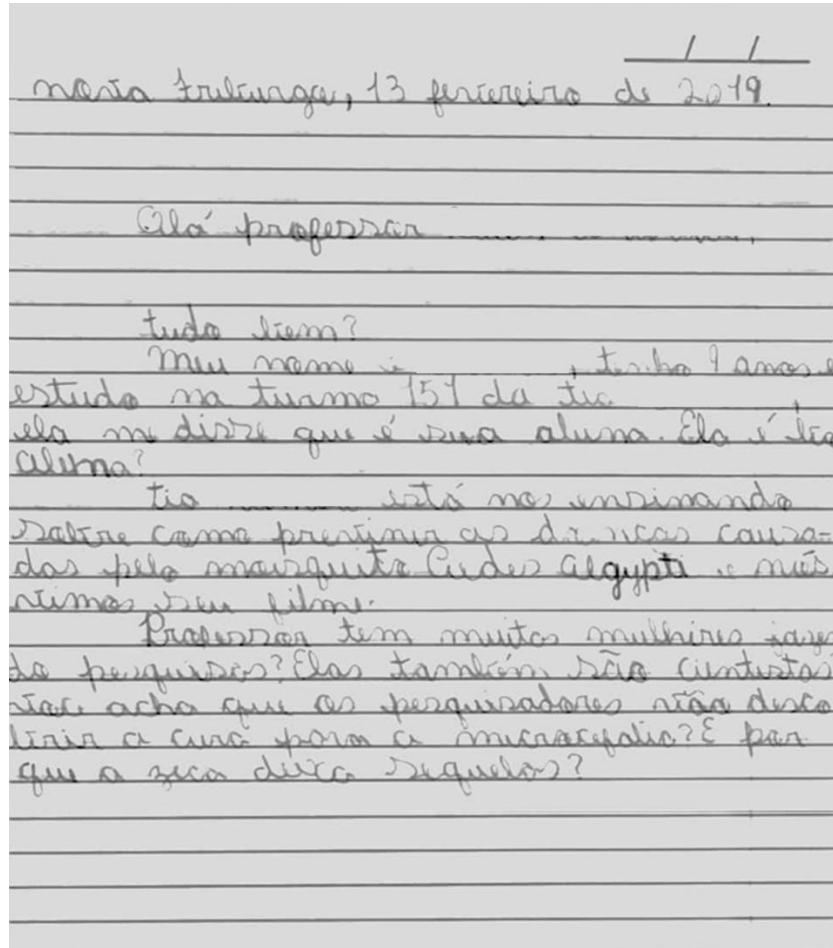 / /
nova friburgo, 13 fevereiro de 2019.
Olá professor
tudo bem?
Meu nome é , tenho 9 anos e
estudo na turma 151 da tia ,
ela me disse que é sua aluna. Ela é boa
aluna?
tia está nos ensinando
sobre como prevenir as doenças causa-
das pelo mosquito Aedes aegypti e nós
vimos seu filme.
Professor tem muitas mulheres fazen
do pesquisas? Elas também são cientistas
você acha que os pesquisadores vão desco
brir a cura para a microcefalia? E por
que a zica deixa sequelas?